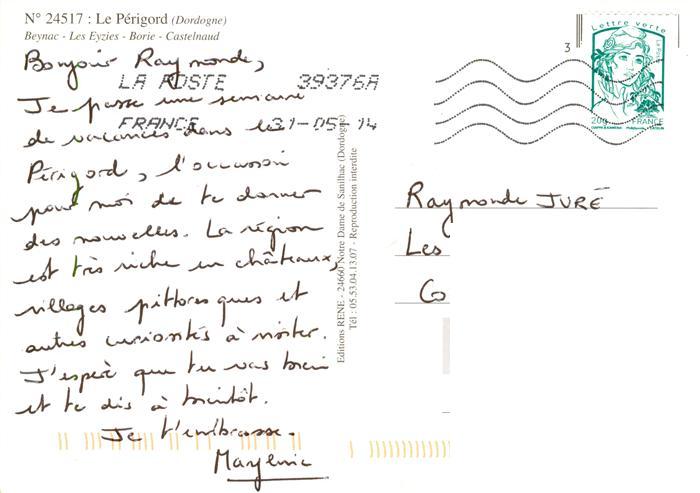 N° 24517 : Le Périgord (Dordogne)
Beynac - Les Eyzies - Borie - Castelnaud
Bonjour Raymonde,
LA POSTE 39376A
Je passe une semaine
de vacances dans le
FRANCE 31-05-14
Périgord, l'occasion
pour moi de te donner
des nouvelles. La région
est très riche en châteaux,
villages pittoresques et
autres curiosités à visiter.
J'espère que tu vas bien
et te dis à bientôt.
Je t'embrasse.
Editions RENE - 24660 Notre Dame de Sanilhac (Dordogne)
Tél : 05.53.04.13.07 - Reproduction interdite
3
Lettre verte
20g FRANCE
Raymonde JURÉ
Les
Co